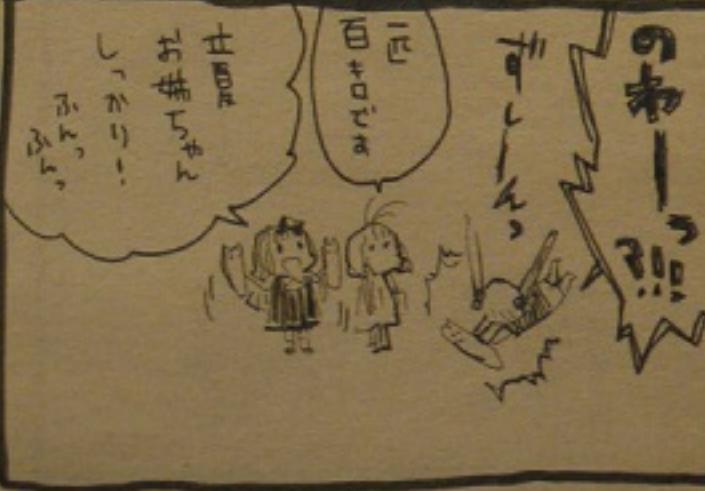 のわーっ?!!
ずしーんっ
一匹
百キロです
立夏
お姉ちゃん
しっかり!
ふんっ
ふんっ